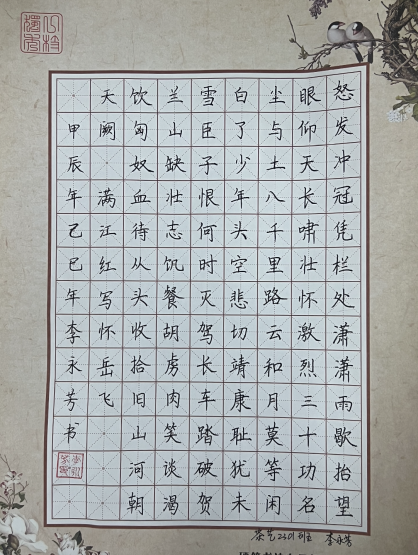 怒发冲冠凭栏处潇潇雨歇抬望
眼仰天长啸壮怀激烈三十功名
尘与土八千里路云和月莫等闲
白了少年头空悲切靖康耻犹未
雪臣子恨何时灭驾长车踏破贺
兰山缺壮志饥餐胡虏肉笑谈渴
饮匈奴血待从头收拾旧山河朝
天阙 满江红写怀岳飞
甲辰年己巳年李永芳书
茶艺2301班 李永芳